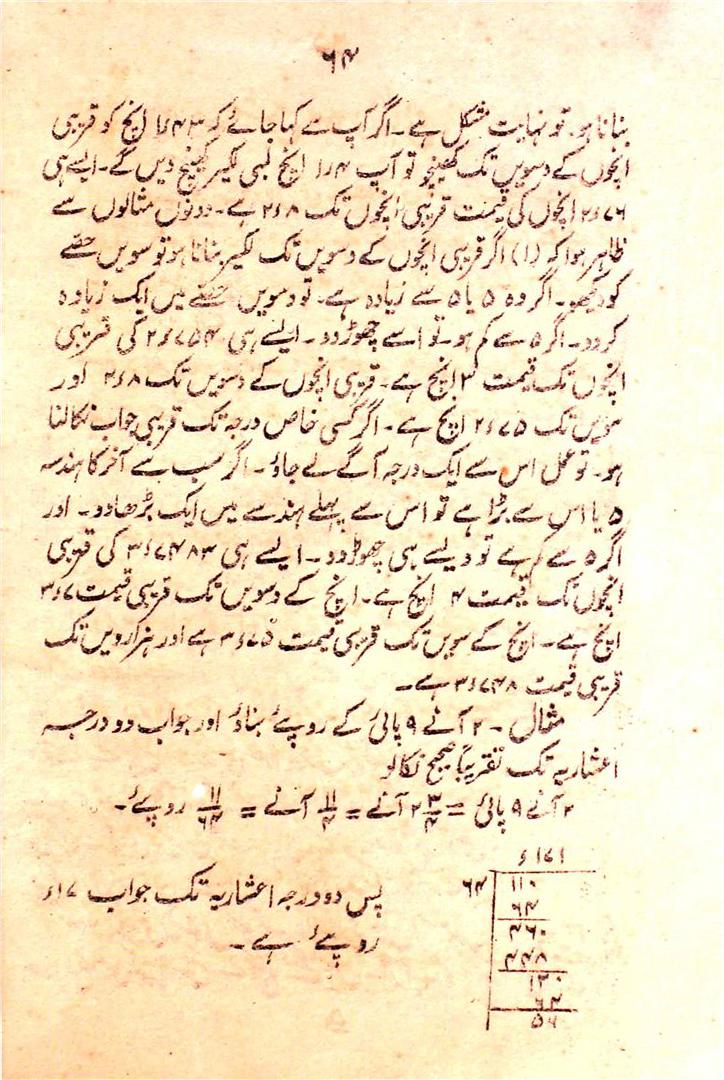 ۶۴
بنانا ہو۔ تو نہایت مشکل ہے۔ اگر آپ سے کہا جائے کہ ۴۳ءا انچ کو قریبی
انچوں کے دسویں تک کھینچو تو آپ ۴ءا انچ لمبی لکیر کھینچ دیں گے۔ ایسے ہی
۷۶ء۲ انچوں کی قیمت قریبی انچوں تک ۸ء۲ ہے۔ دونوں مثالوں سے
ظاہر ہوا کہ (۱) اگر قریبی انچوں کے دسویں تک لکیر بنانا ہو تو سویں حصے
کو دیکھو۔ اگر وہ ۵ یا ۵ سے زیادہ ہے۔ تو دسویں حصے میں ایک زیادہ
کر دو۔ اگر ۵ سے کم ہو۔ تو اسے چھوڑ دو۔ ایسے ہی ۷۵۴ء۲ کی قریبی
انچوں تک قیمت ۳ انچ ہے۔ قریبی انچوں کے دسویں تک ۸ء۲ اور
سویں تک ۷۵ء۲ انچ ہے۔ اگر کسی خاص درجہ تک قریبی جواب نکالنا
ہو۔ تو عمل اس سے ایک درجہ آگے لے جاؤ۔ اگر سب سے آخر کا ہندسہ
۵ یا اس سے بڑا ہے تو اس سے پہلے ہندسے میں ایک بڑھا دو۔ اور
اگر ۵ سے کم ہے تو ویسے ہی چھوڑ دو۔ ایسے ہی ۷۴۸۳ء۳ کی قریبی
انچوں تک قیمت ۴ انچ ہے۔ انچ کے دسویں تک قریبی قیمت ۷ء۳
انچ ہے۔ انچ کے سویں تک قریبی قیمت ۷۵ء۳ ہے اور ہزارویں تک
قریبی قیمت ۷۴۸ء۳ ہے۔
مثال۔ ۲ آنے ۹ پائی کے روپے بناؤ اور جواب دو درجہ
اعشاریہ تک تقریباً صحیح نکالو
۲ آنے ۹ پائی = ۲ ۳/۴ آنے = ۱۱/۴ آنے = ۱۱/۶۴ روپے۔
ء۱۷۱
۶۴ ۱۱۰
۶۴
۴۶۰
۴۴۸
۱۲۰
۶۴
۵۶
پس دو درجہ اعشاریہ تک جواب ۱۷ء
روپے ہے۔